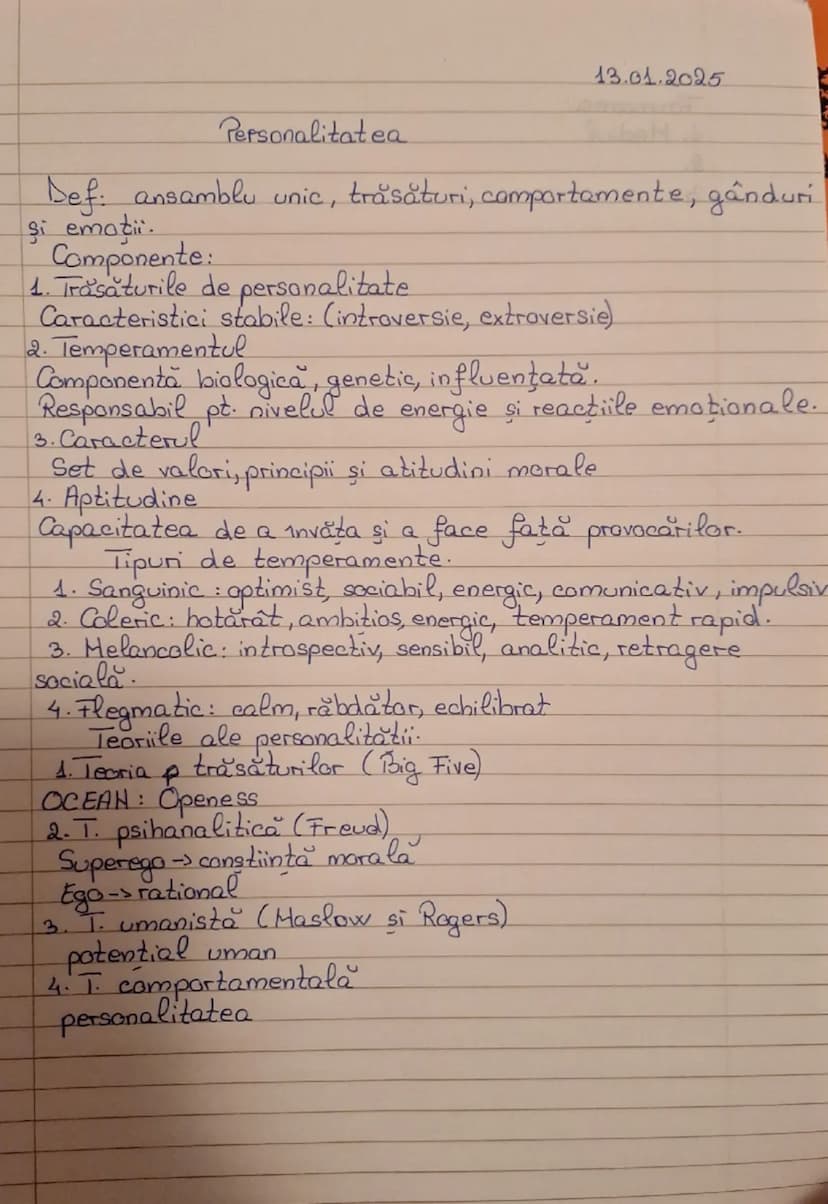 13.01.2025
Personalitatea
Def: ansamblu unic, trăsături, comportamente, gânduri
și emoții.
Componente:
1. Trăsăturile de personalitate
Caracteristici stabile: (introversie, extroversie)
2. Temperamentul
Componentă biologică, genetic, influențată.
Responsabil pt. nivelul de energie și reacțiile emoționale.
3. Caracterul
Set de valori, principii și atitudini morale
4. Aptitudine
Capacitatea de a învăța și a face față provocărilor.
Tipuri de temperamente.
1. Sanguinic: optimist, sociabil, energic, comunicativ, impulsiv
2. Coleric: hotărât, ambitios, energic, temperament rapid.
3. Melancolic: introspectiv, sensibil, analitic, retragere
socială.
4. Flegmatic: calm, răbdător, echilibrat
Teoriile ale personalității.
1. Teoria p trăsăturilor (Big Five)
OCEAN: Openess
2. T. psihanalitică (Freud)
Superego -> conștiință morală
Ego -> rational
3. T. umanistă (Maslow și Rogers)
potențial uman
4. T. comportamentală
personalitatea